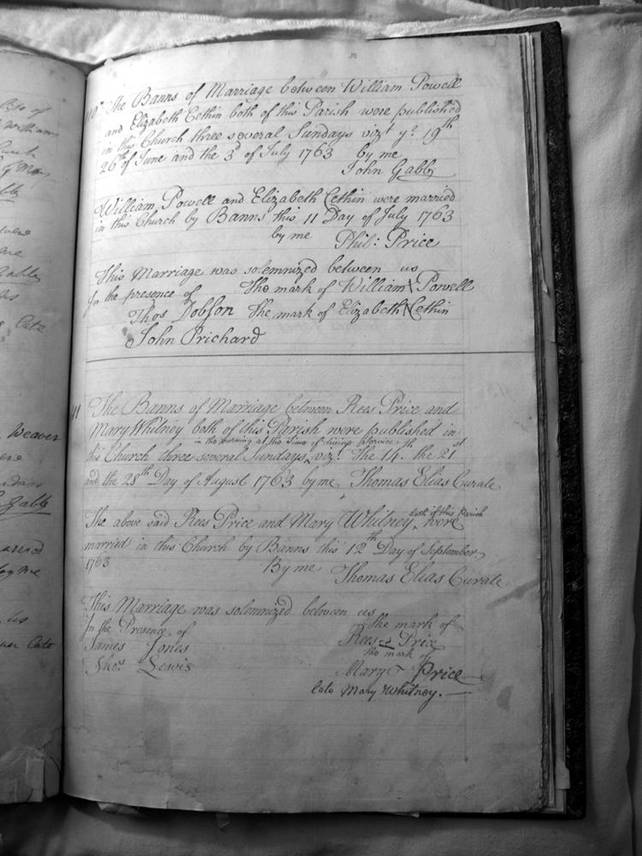 The Banns of Marriage between William Powell
and Elizabeth Cethin both of this Parish were published
in this Church three several Sundays vizt ye 19th
26th of June and the 3d of July 1763 by me
John Gabb
William Powell and Elizabeth Cethin were married
in this Church by Banns this 11 Day of July 1763
by me Phil: Price
This Marriage was solemnized between us
In the presence of The mark of William Powell
Thos Dobson The mark of Elizabeth Cethin
John Prichard
11 The Banns of Marriage between Rees Price and
Mary Whitney both of this Parish were published in
in the morning at the time of divine service
this Church three several Sundays, vizt. The 14th. the 21st
and the 28th Day of August 1763 by me Thomas Elias Curate
The above said Rees Price and Mary Whitney both of this Parish were
married in this Church by Banns this 12th Day of September
1763 By me Thomas Elias Curate
This Marriage was solemnized between us
In the Presence of the mark of
James Jones Rees Price
Thos Lewis the mark of
Mary Price
late Mary Whitney.